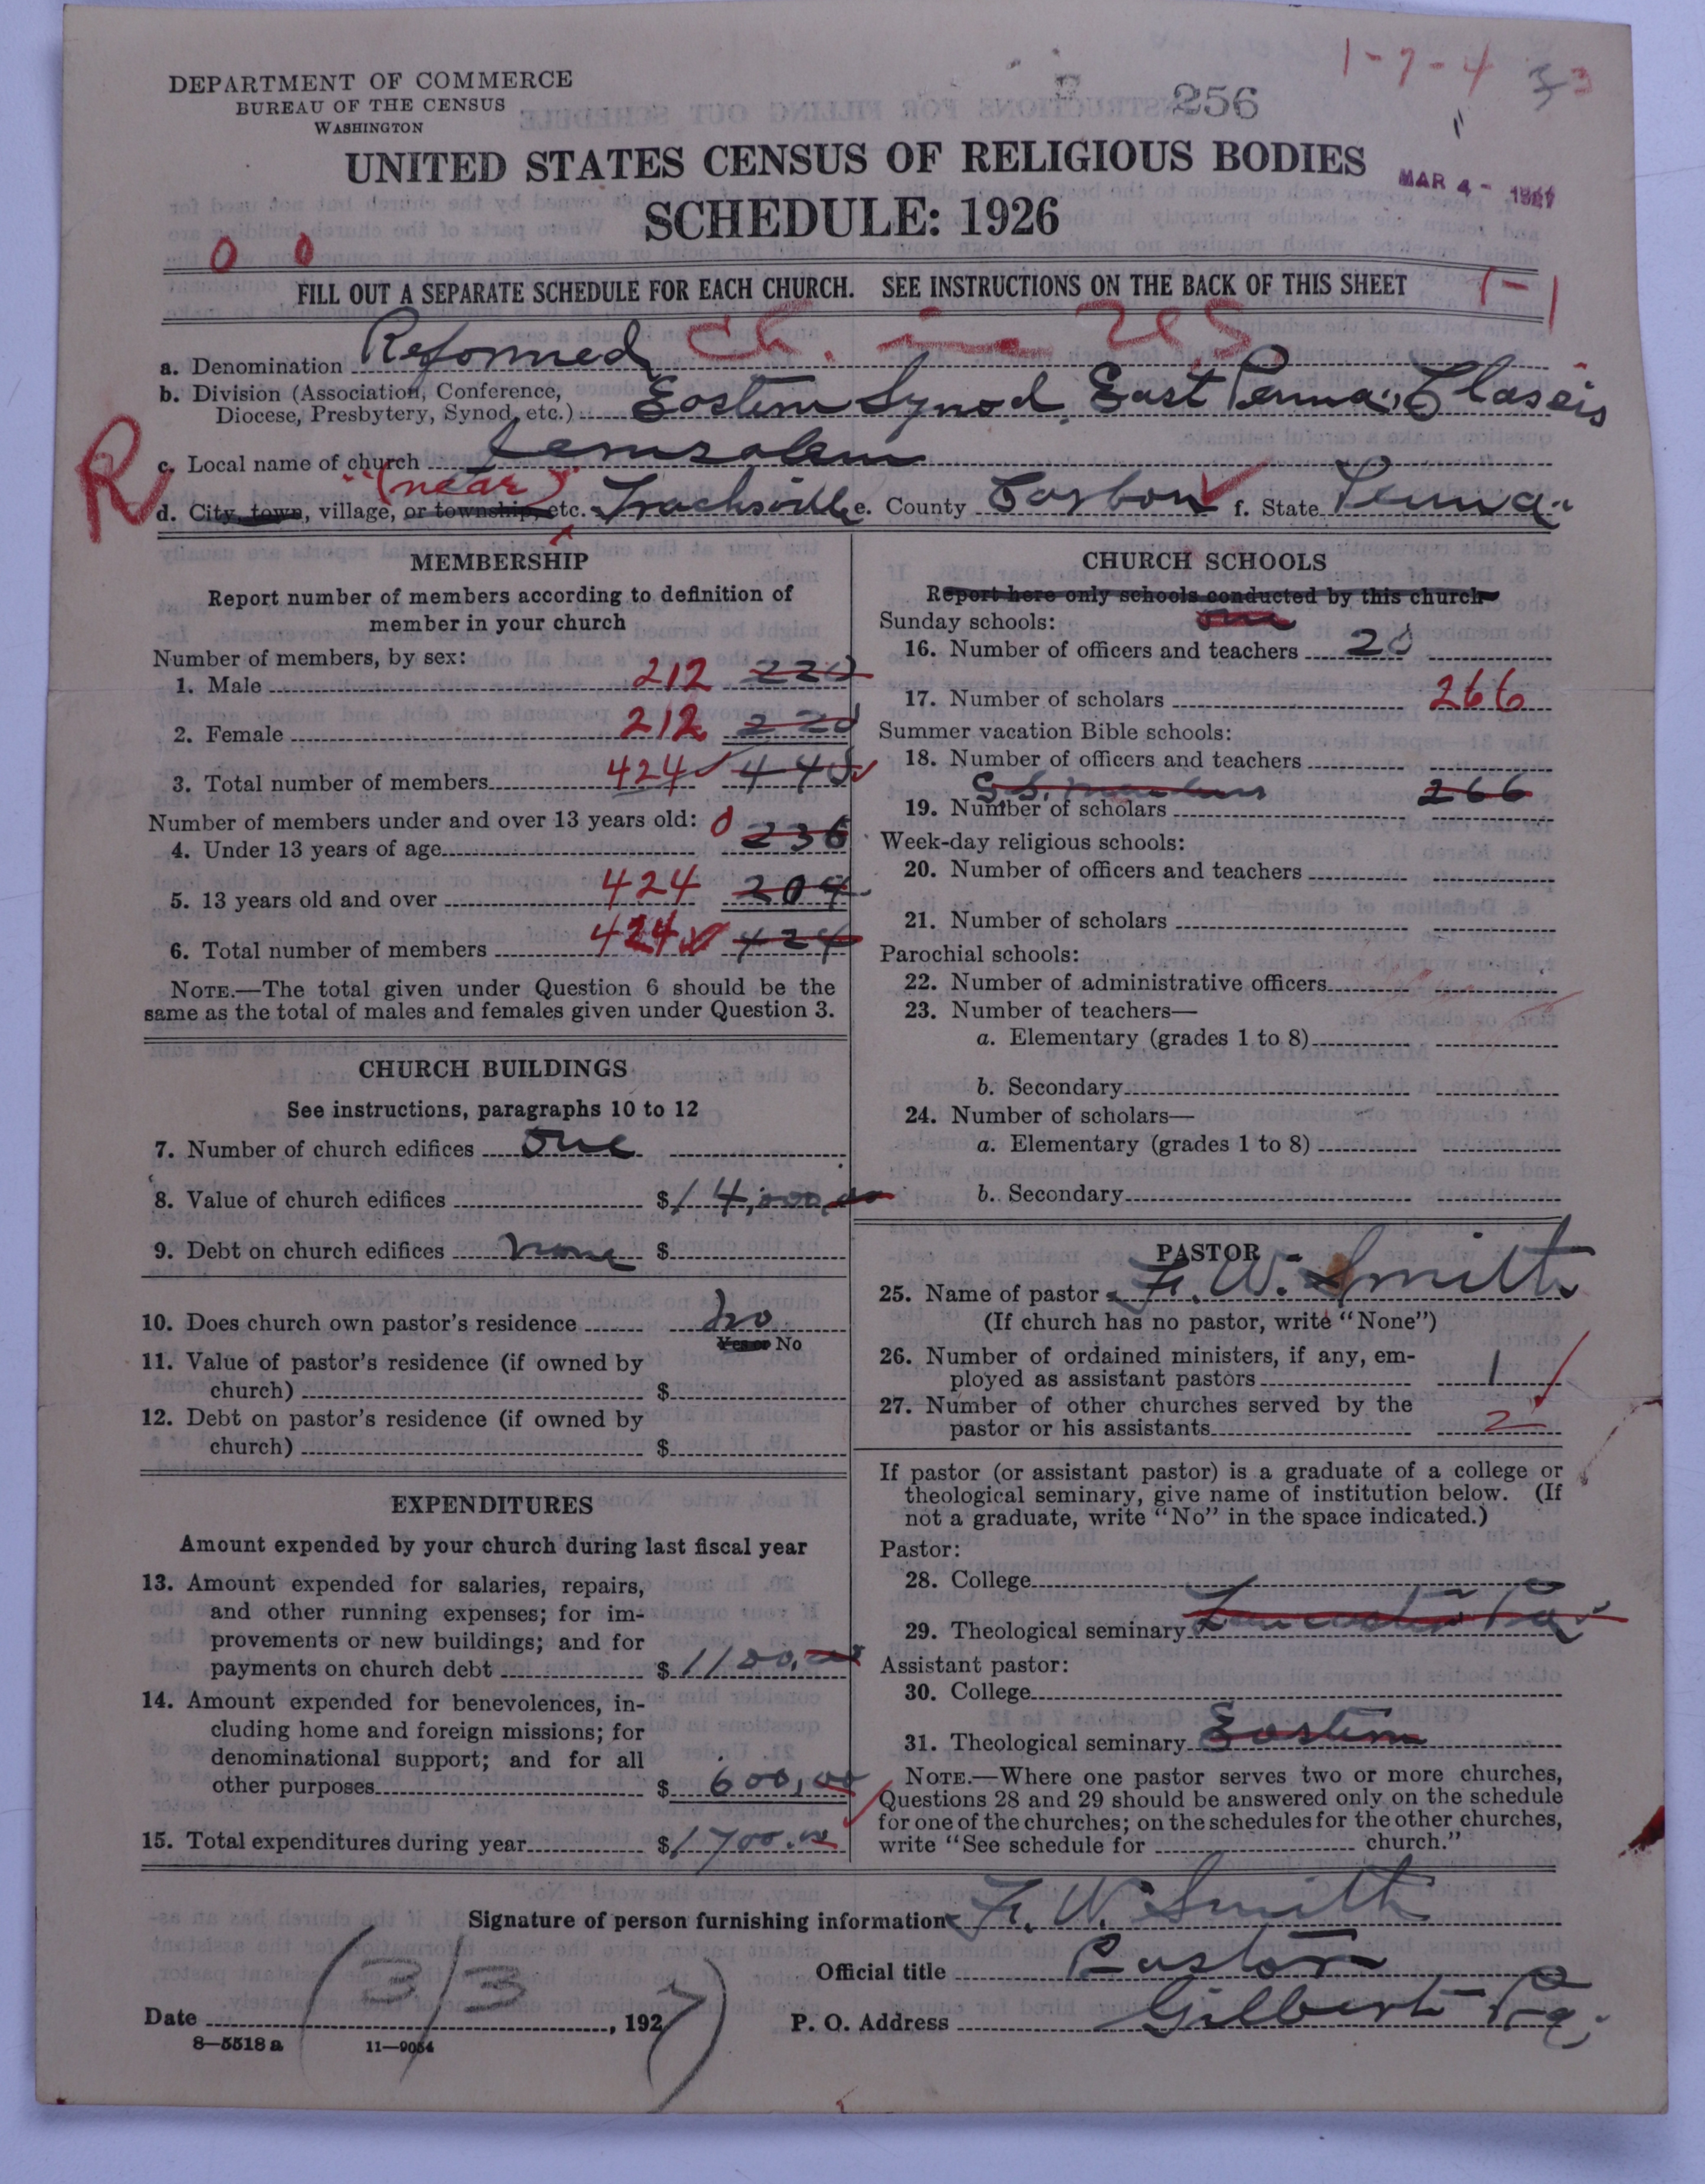 1-7-4 33
256
DEPARTMENT OF COMMERCE
BUREAU OF THE CENSUS
WASHINGTON
UNITED STATES CENSUS OF RELIGIOUS BODIES
MAR 4 - 1927
SCHEDULE: 1926
0 0
FILL OUT A SEPARATE SCHEDULE FOR EACH CHURCH. SEE INSTRUCTIONS ON THE BACK OF THIS SHEET
1-1
a. Denomination Reformed Ch. in US
b. Division (Association, Conference,
Diocese, Presbytery, Synod, etc.) Eastern Synod, East Penna. Classis
R
c. Local name of church Jerusalem
(near)
d. City, town, village, or township, etc. Trachsville e. County Carbon f. State Penna.
MEMBERSHIP
Report number of members according to definition of
member in your church
Number of members, by sex:
1. Male 212 220
2. Female 212 220
3. Total number of members 424 440
Number of members under and over 13 years old:
4. Under 13 years of age 0 236
5. 13 years old and over 424 204
6. Total number of members 424 424
NOTE.—The total given under Question 6 should be the
same as the total of males and females given under Question 3.
CHURCH BUILDINGS
See instructions, paragraphs 10 to 12
7. Number of church edifices one
8. Value of church edifices $14,000.00
9. Debt on church edifices none $
10. Does church own pastor's residence no
Yes or No
11. Value of pastor's residence (if owned by
church) $
12. Debt on pastor's residence (if owned by
church) $
EXPENDITURES
Amount expended by your church during last fiscal year
13. Amount expended for salaries, repairs,
and other running expenses; for im-
provements or new buildings; and for
payments on church debt $1100.00
14. Amount expended for benevolences, in-
cluding home and foreign missions; for
denominational support; and for all
other purposes $600.00
15. Total expenditures during year $1700.00
CHURCH SCHOOLS
Report here only schools conducted by this church
Sunday schools: one
16. Number of officers and teachers 20
17. Number of scholars 266
Summer vacation Bible schools:
18. Number of officers and teachers
S.S. members 266
19. Number of scholars
Week-day religious schools:
20. Number of officers and teachers
21. Number of scholars
Parochial schools:
22. Number of administrative officers
23. Number of teachers—
a. Elementary (grades 1 to 8)
b. Secondary
24. Number of scholars—
a. Elementary (grades 1 to 8)
b. Secondary
PASTOR
25. Name of pastor F. W. Smith
(If church has no pastor, write "None")
26. Number of ordained ministers, if any, em-
ployed as assistant pastors 1
27. Number of other churches served by the
pastor or his assistants 2
If pastor (or assistant pastor) is a graduate of a college or
theological seminary, give name of institution below. (If
not a graduate, write "No" in the space indicated.)
Pastor:
28. College
29. Theological seminary Lancaster Pa.
Assistant pastor:
30. College
31. Theological seminary Eastern
NOTE.—Where one pastor serves two or more churches,
Questions 28 and 29 should be answered only on the schedule
for one of the churches; on the schedules for the other churches,
write "See schedule for church."
Signature of person furnishing information F. W. Smith
Official title Pastor
Date (3/3, 1927)
P. O. Address Gilbert Pa.
8—5518 a 11—9054